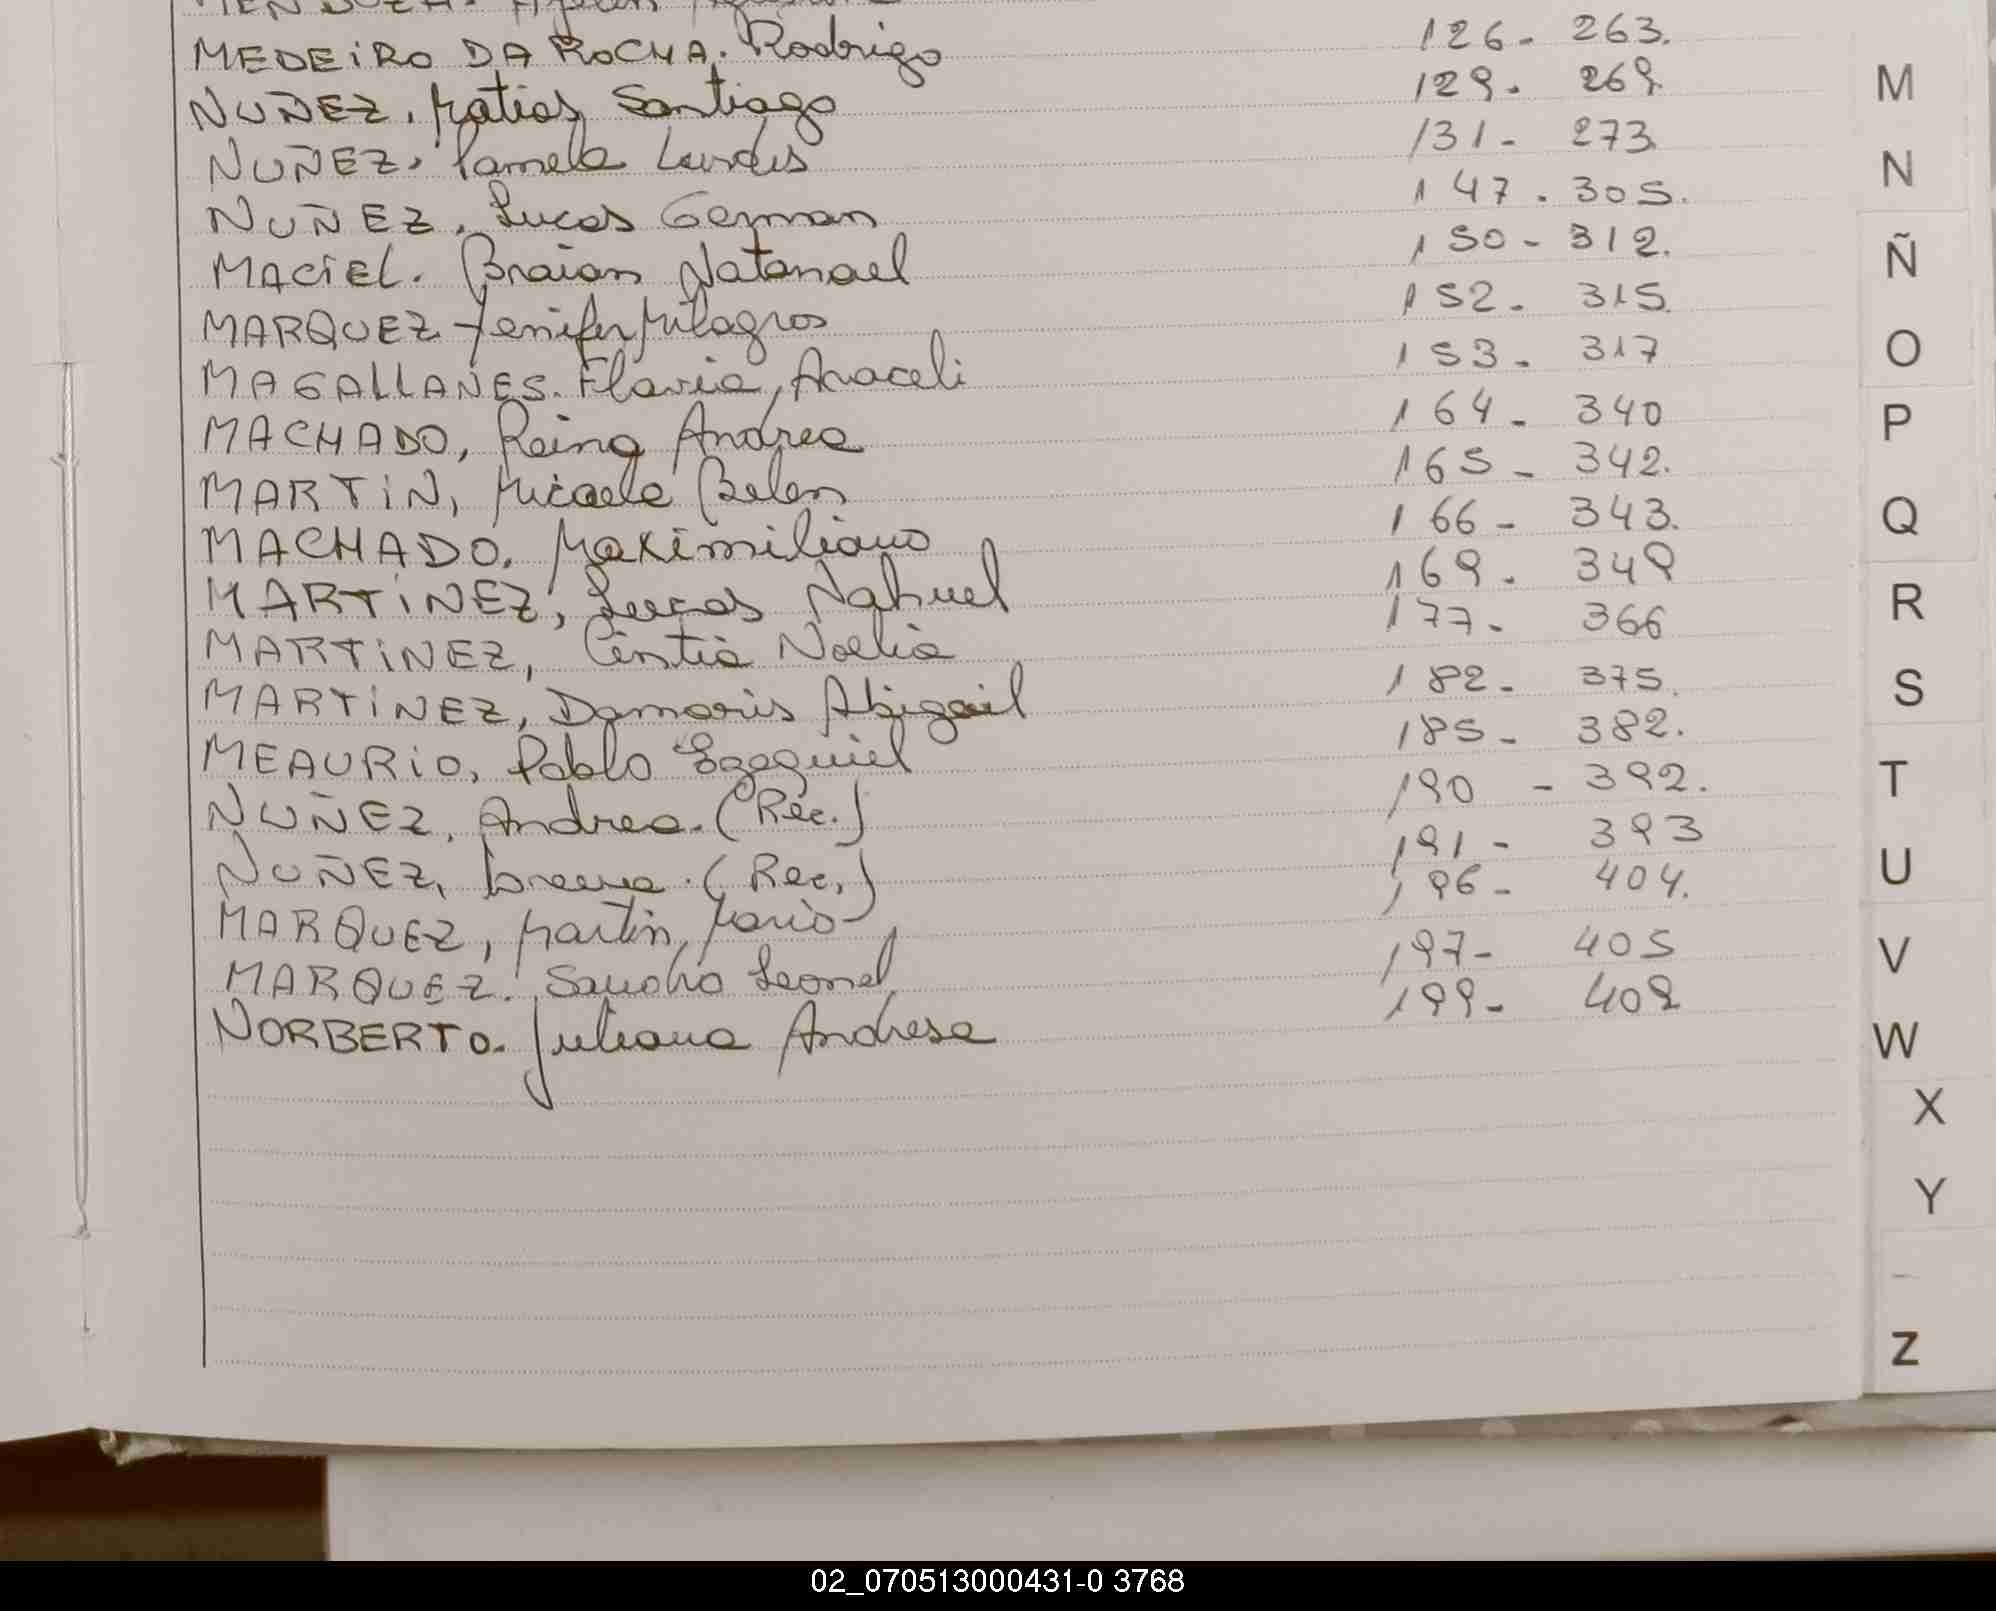 MEDEIRO DA ROCHA. Rodrigo 126- 263.
NUÑEZ, Matias Santiago 129. 269.
NUÑEZ, Pamela Lurdes 131- 273
NUÑEZ, Lucas German 147. 305.
MACIEL. Braian Natanael 150- 312.
MARQUEZ Yenifer Milagros 152. 315.
MAGALLANES. Flavia, Araceli 153. 317
MACHADO, Reina Andrea 164- 340
MARTIN, Micaela Belen 165- 342.
MACHADO, Maximiliano 166- 343.
MARTINEZ, Lucas Nahuel 169. 349
MARTINEZ, Cintia Noelia 177- 366
MARTINEZ, Damaris Abigail 182- 375.
MEAURIO, Pablo Ezequiel 185- 382.
NUÑEZ, Andrea. (Rec.) 190 - 392.
NUÑEZ, Lorena. (Rec.) 191- 393
MARQUEZ, Martin, Mario 196- 404.
MARQUEZ. Sandro Leonel 197- 405
NORBERTO. Juliana Andresa 199- 409
M
N
Ñ
O
P
Q
R
S
T
U
V
W
X
Y
Z
02_070513000431-0 3768